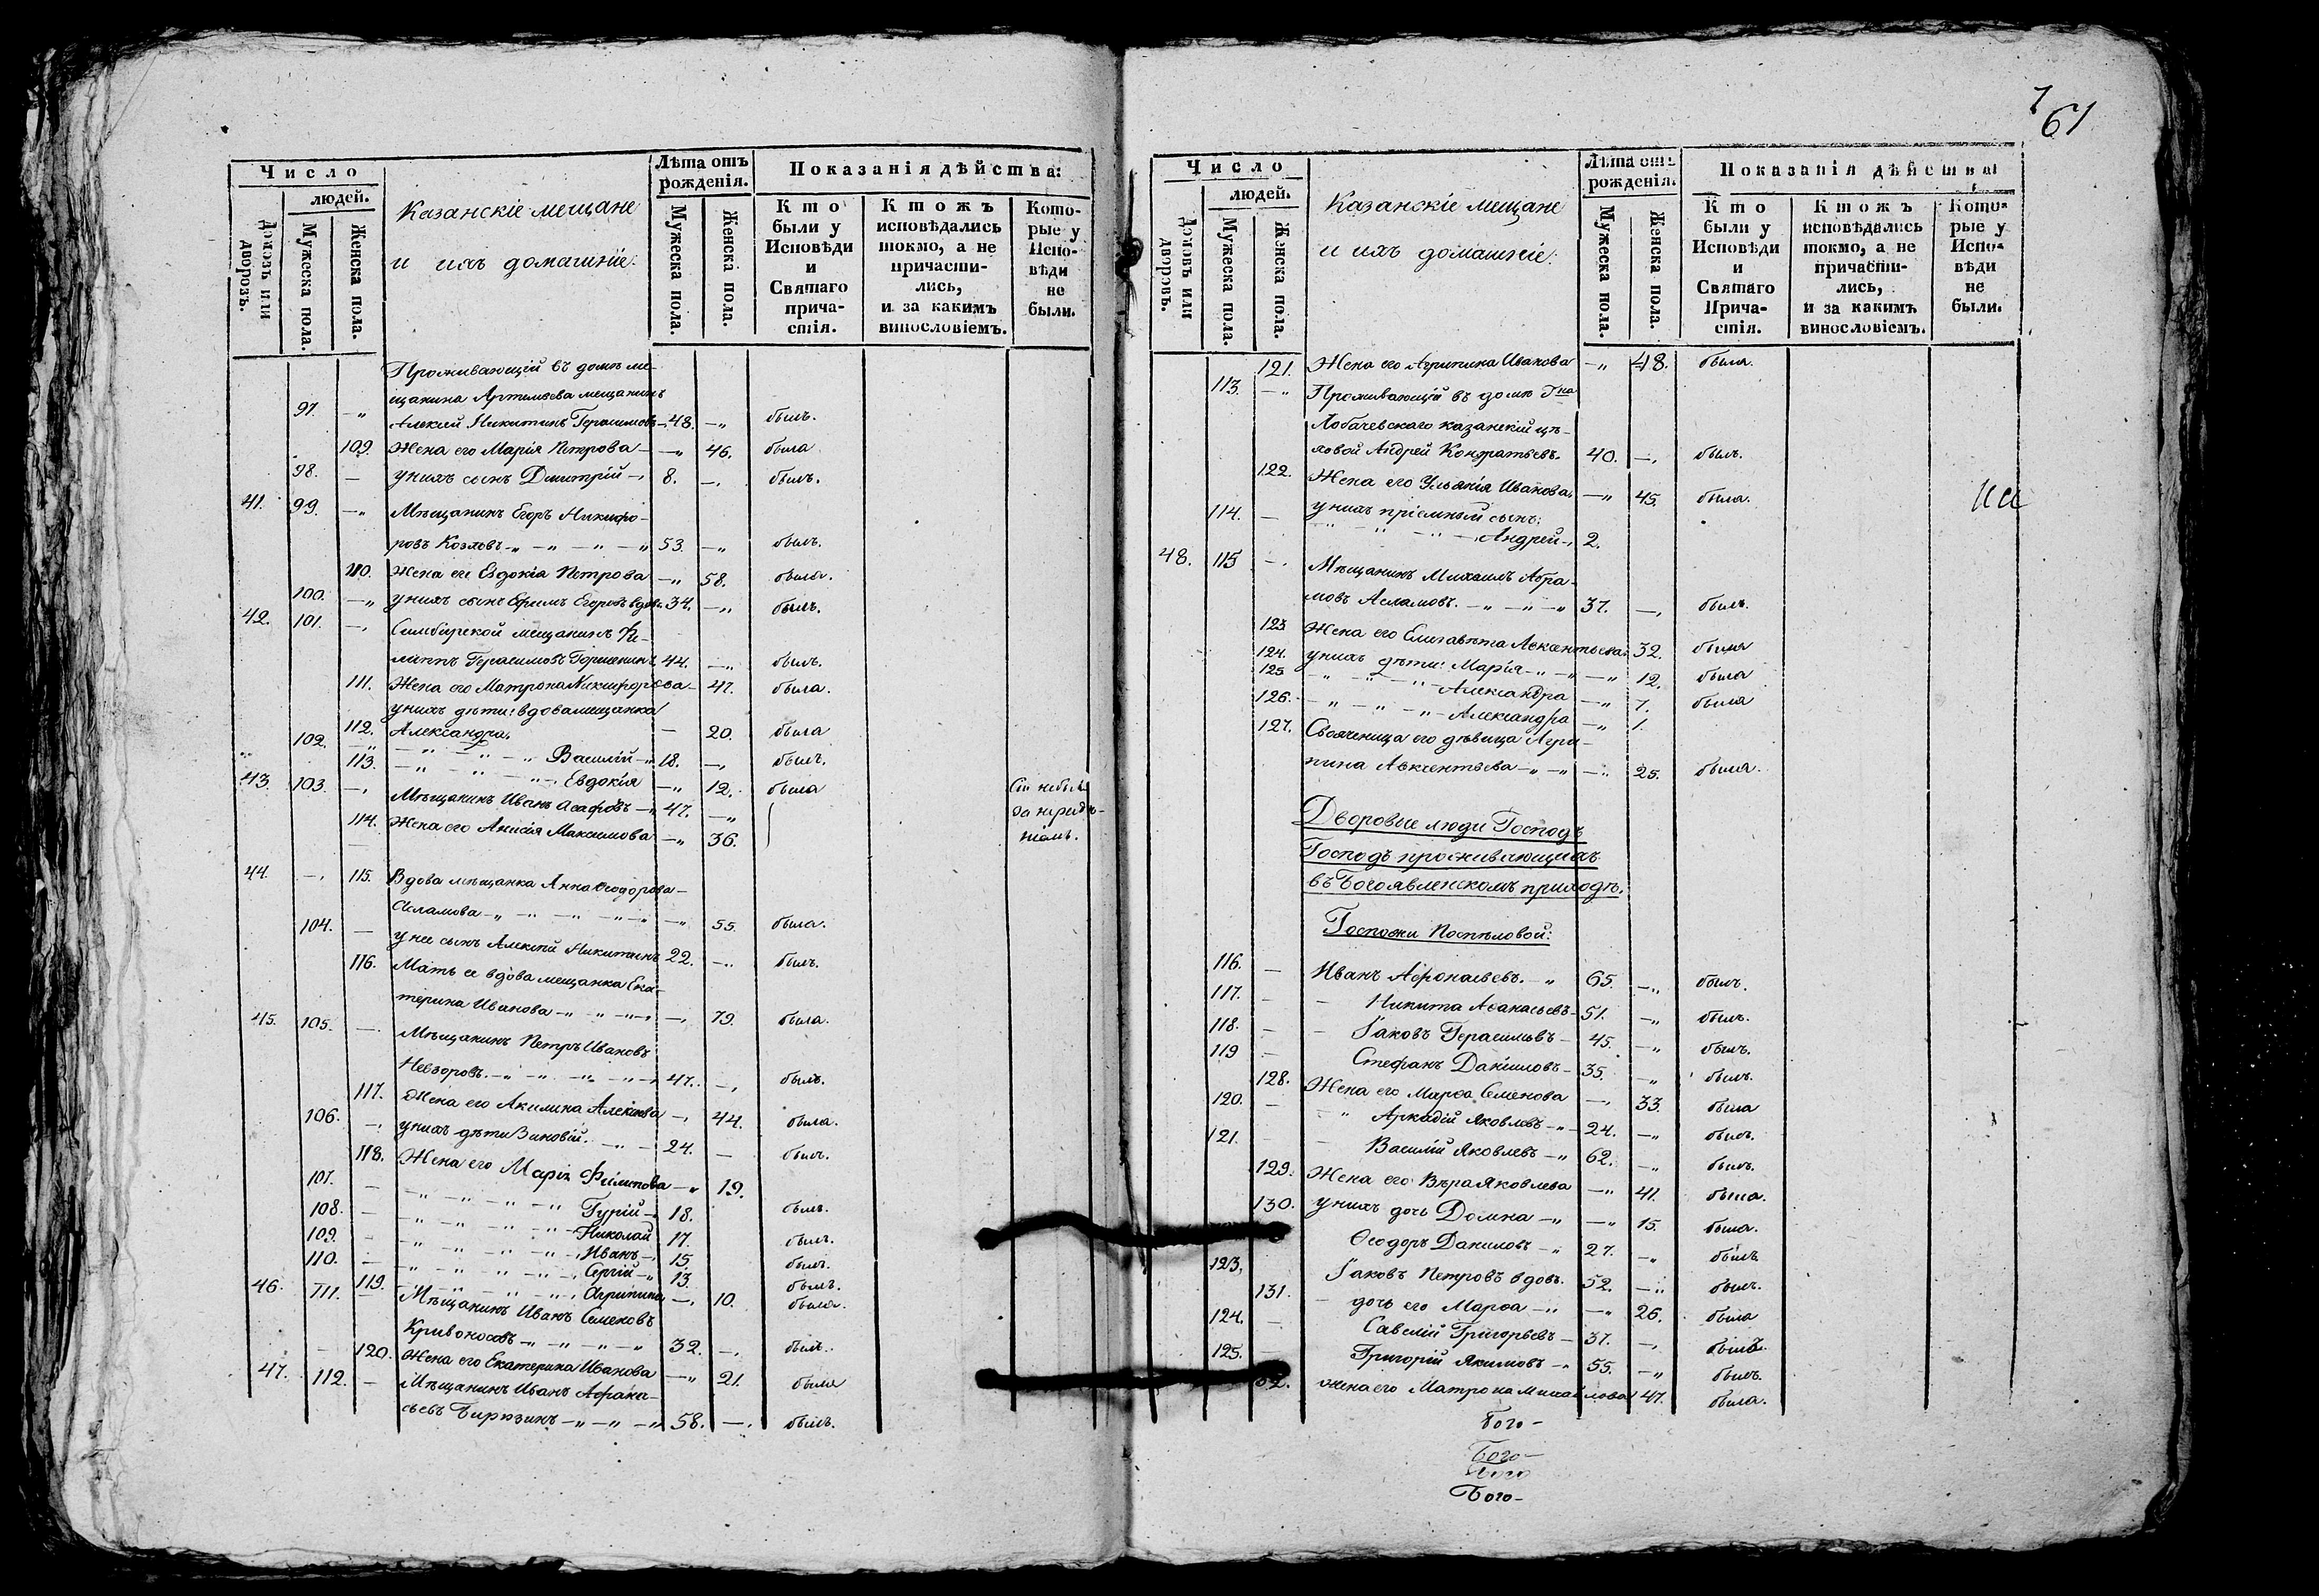 Число
людей.
Домовъ или дворовъ.
Мужеска пола.
Женска пола.
Казанскіе мещане
и ихъ домашніе:
Лѣта отъ рожденія.
Мужеска пола.
Женска пола.
Показанія дѣйства:
Кто были у Исповѣди и Святаго причастія.
Ктожъ исповѣдались токмо, а не причастились, и за какимъ винословіемъ.
Которые у Исповѣди не были.
Проживающій въ домѣ ме-
щанина Артемьева мещанинъ
97. —„ Алексій Никитинъ Герасимовъ 48. —„ былъ.
109. Жена его Марія Петрова —„ 46. была
98. — у нихъ сынъ Дмитрій — 8. —, былъ.
41. 99. —„ Мѣщанинъ Егоръ Никифо-
ровъ Козловъ —„ —„ —„ —„ 53. —„ былъ.
110. Жена его Евдокія Петрова —„ 58. была.
100. —„ у нихъ сынъ Ефимъ Егоровъ вдов. 34. —„ былъ.
42. 101. —, Симбирской мещанинъ Фи-
липпъ Герасимовъ Горшенинъ 44. —„ былъ.
111. Жена его Матрона Никифорова — 47. была.
у нихъ дѣти: вдова мещанка
112. Александра. — 20. была
102. —„ —„ —„ —„ Василій —„ 18. —, былъ.
113. —„ —„ —„ Евдокія —„ 12. была
43. 103. —, Мѣщанинъ Иванъ Асафовъ —„ 47. —„ Сіи небыли
за нерадѣ-
114. Жена его Анисія Максимова —„ 36. ніемъ.
44. —, 115. Вдова мѣщанка Анна Ѳеодорова —
Асламова —„ —„ —„ —„ —„ 55. была.
104. — у нее сынъ Алексѣй Никитинъ 22. —„ былъ.
116. Мать ее вдова мещанка Ека-
терина Иванова —„ —„ —„ —, 79. была.
45. 105. —. Мѣщанинъ Петръ Ивановъ
Невзоровъ. —„ —„ —„ —„ 47. —, былъ.
117. Жена его Акилина Алексіева —, 44. была.
106. —, у нихъ дѣти Зиновій. —„ — 24. — былъ.
118. Жена его Марія Филипова —„ 19.
107. — —„ —„ —„ —„ Гурій — 18. былъ.
108. — —„ —„ —„ —„ Николай 17. былъ.
109. — —„ —„ —„ —„ Иванъ —, 15. былъ.
110. — —„ —„ —„ —„ Сергій —„ 13. былъ.
119. —„ —„ —„ —„ Агрипина —, 10. была.
46. 111. — Мѣщанинъ Иванъ Семеновъ
Кривоносовъ —„ —„ —„ —„ 32. —. былъ.
120. Жена его Екатерина Иванова —„ 21. была
47. 112. — Мѣщанинъ Иванъ Афана-
сьевъ Бирюзинъ —„ —„ —„ 58. —. былъ.
7
61
Число
людей.
Домовъ или дворовъ.
Мужеска пола.
Женска пола.
Казанскіе мещане
и ихъ домашніе:
Лѣта отъ рожденія.
Мужеска пола.
Женска пола.
Показанія дѣйства
Кто были у Исповѣди и Святаго Причастія.
Ктожъ исповѣдались токмо, а не причастились, и за какимъ винословіемъ.
Которые у Исповѣди не были.
121. Жена его Агрипина Иванова —„ 48. была.
113. —„ Проживающій въ домѣ Гна
Лобачевскаго казанскій цѣ-
ховой Андрей Кондратьевъ. 40. —. былъ.
122. Жена его Ульянія Иванова —„ 45. была.
114. — у нихъ пріемный сынъ:
—„ —„ Андрей —, 2.
48. 115 —. Мѣщанинъ Михаилъ Абра-
мовъ Асламовъ. —„ —„ —„ 37. —, былъ.
123 Жена его Елисавета Авксентьева 32. была
124. у нихъ дѣти: Марія —„ —„ —„ 12. была
125 —„ —„ —„ Александра —„ 7. была
126. —„ —„ —„ Александра —„ 1.
127. Свояченица его дѣвица Агри-
пина Авксентьева —„ —„ —„ 25. была.
Дворовые люди Господъ
Господъ проживающихъ
въ Богоявленскомъ приходѣ.
Госпожи Поспѣловой:
116. — Иванъ Афонасьевъ. —„ 65. —„ былъ.
117. — — Никита Аѳанасьевъ — 51. —„ былъ.
118. — — Іаковъ Герасимовъ — 45. —„ былъ.
119 — Стефанъ Даніиловъ — 35. —„ былъ.
128. Жена его Марѳа Семенова —, 33. была
120. — „ Аркадій Яковлевъ —„ 24. —„ былъ.
121. — Василій Яковлевъ —„ 62. —„ былъ.
129. Жена его Вѣра Яковлева —„ 41. была.
130. у нихъ дочь Домна —„ —„ 15. была.
Ѳеодоръ Даниловъ —„ 27. —„ былъ
123. Іаковъ Петровъ вдовъ. 52. —„ былъ.
131. — дочь его Марѳа —„ —„ 26. была
124. — Савелій Григорьевъ — 37. —, былъ.
125. — Григорій Якимовъ —„ 55. —„ былъ.
32. Жена его Матрона Михайлова 47. была.
Бого-
Бого-
Бого-